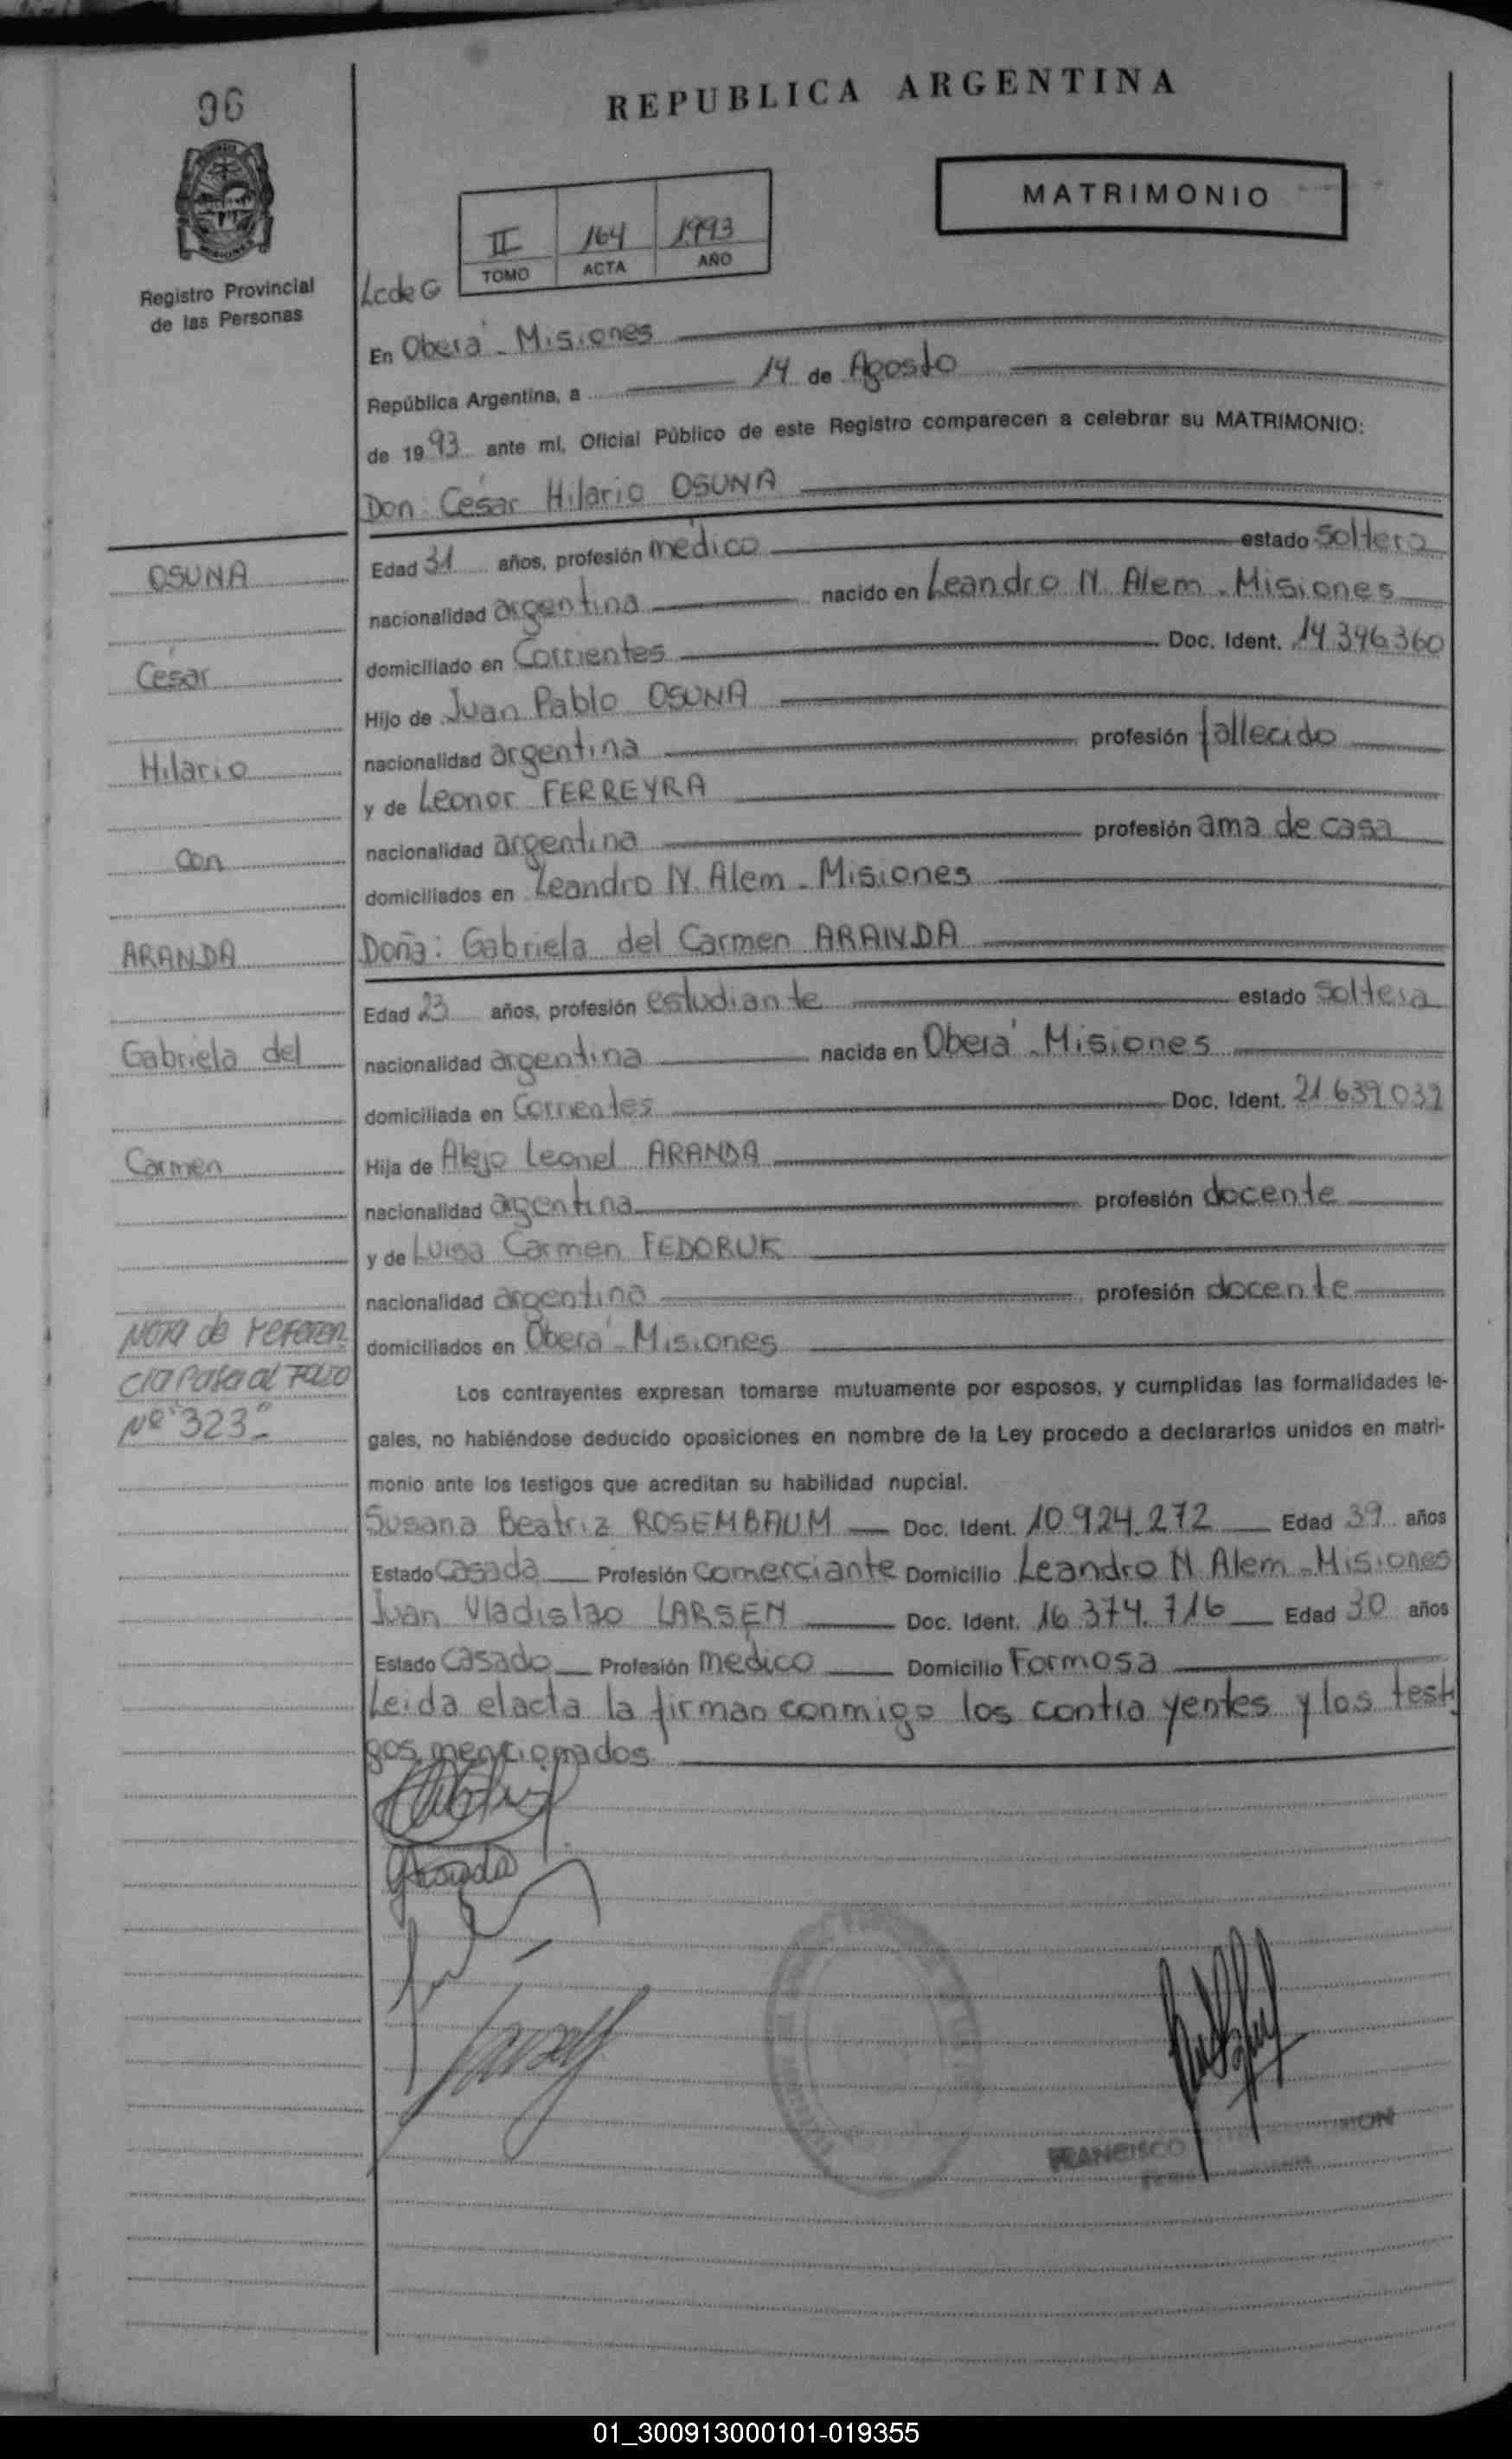 96
REPUBLICA ARGENTINA
MATRIMONIO
II 164 1993
TOMO ACTA AÑO
Registro Provincial
de las Personas
En Oberá - Misiones
República Argentina, a 14 de Agosto
de 1993 ante mí, Oficial Público de este Registro comparecen a celebrar su MATRIMONIO:
Don: César Hilario OSUNA
OSUNA
César
Hilario
con
ARANDA
Gabriela del
Carmen
Nota de referen
cia Pasa al Folio
Nº 323"-
Edad 31 años, profesión médico estado soltero
nacionalidad argentina nacido en Leandro N. Alem - Misiones
domiciliado en Corrientes Doc. Ident. 14.396.360
Hijo de Juan Pablo OSUNA
nacionalidad argentina profesión fallecido
y de Leonor FERREYRA
nacionalidad argentina profesión ama de casa
domiciliados en Leandro N. Alem - Misiones
Doña: Gabriela del Carmen ARANDA
Edad 23 años, profesión estudiante estado soltera
nacionalidad argentina nacida en Oberá - Misiones
domiciliada en Corrientes Doc. Ident. 21.639.039
Hija de Alejo Leonel ARANDA
nacionalidad argentina profesión docente
y de Luisa Carmen FEDORUK
nacionalidad argentina profesión docente
domiciliados en Oberá - Misiones
Los contrayentes expresan tomarse mutuamente por esposos, y cumplidas las formalidades le-
gales, no habiéndose deducido oposiciones en nombre de la Ley procedo a declararlos unidos en matri-
monio ante los testigos que acreditan su habilidad nupcial.
Susana Beatriz ROSEMBAUM Doc. Ident. 10.924.272 Edad 39 años
Estado casada Profesión comerciante Domicilio Leandro N. Alem - Misiones
Juan Vladislao LARSEN Doc. Ident. 16.374.716 Edad 30 años
Estado casado Profesión médico Domicilio Formosa
Leida el acta la firman conmigo los contrayentes y los testi
gos mencionados
FRANCISCO
01_300913000101-019355